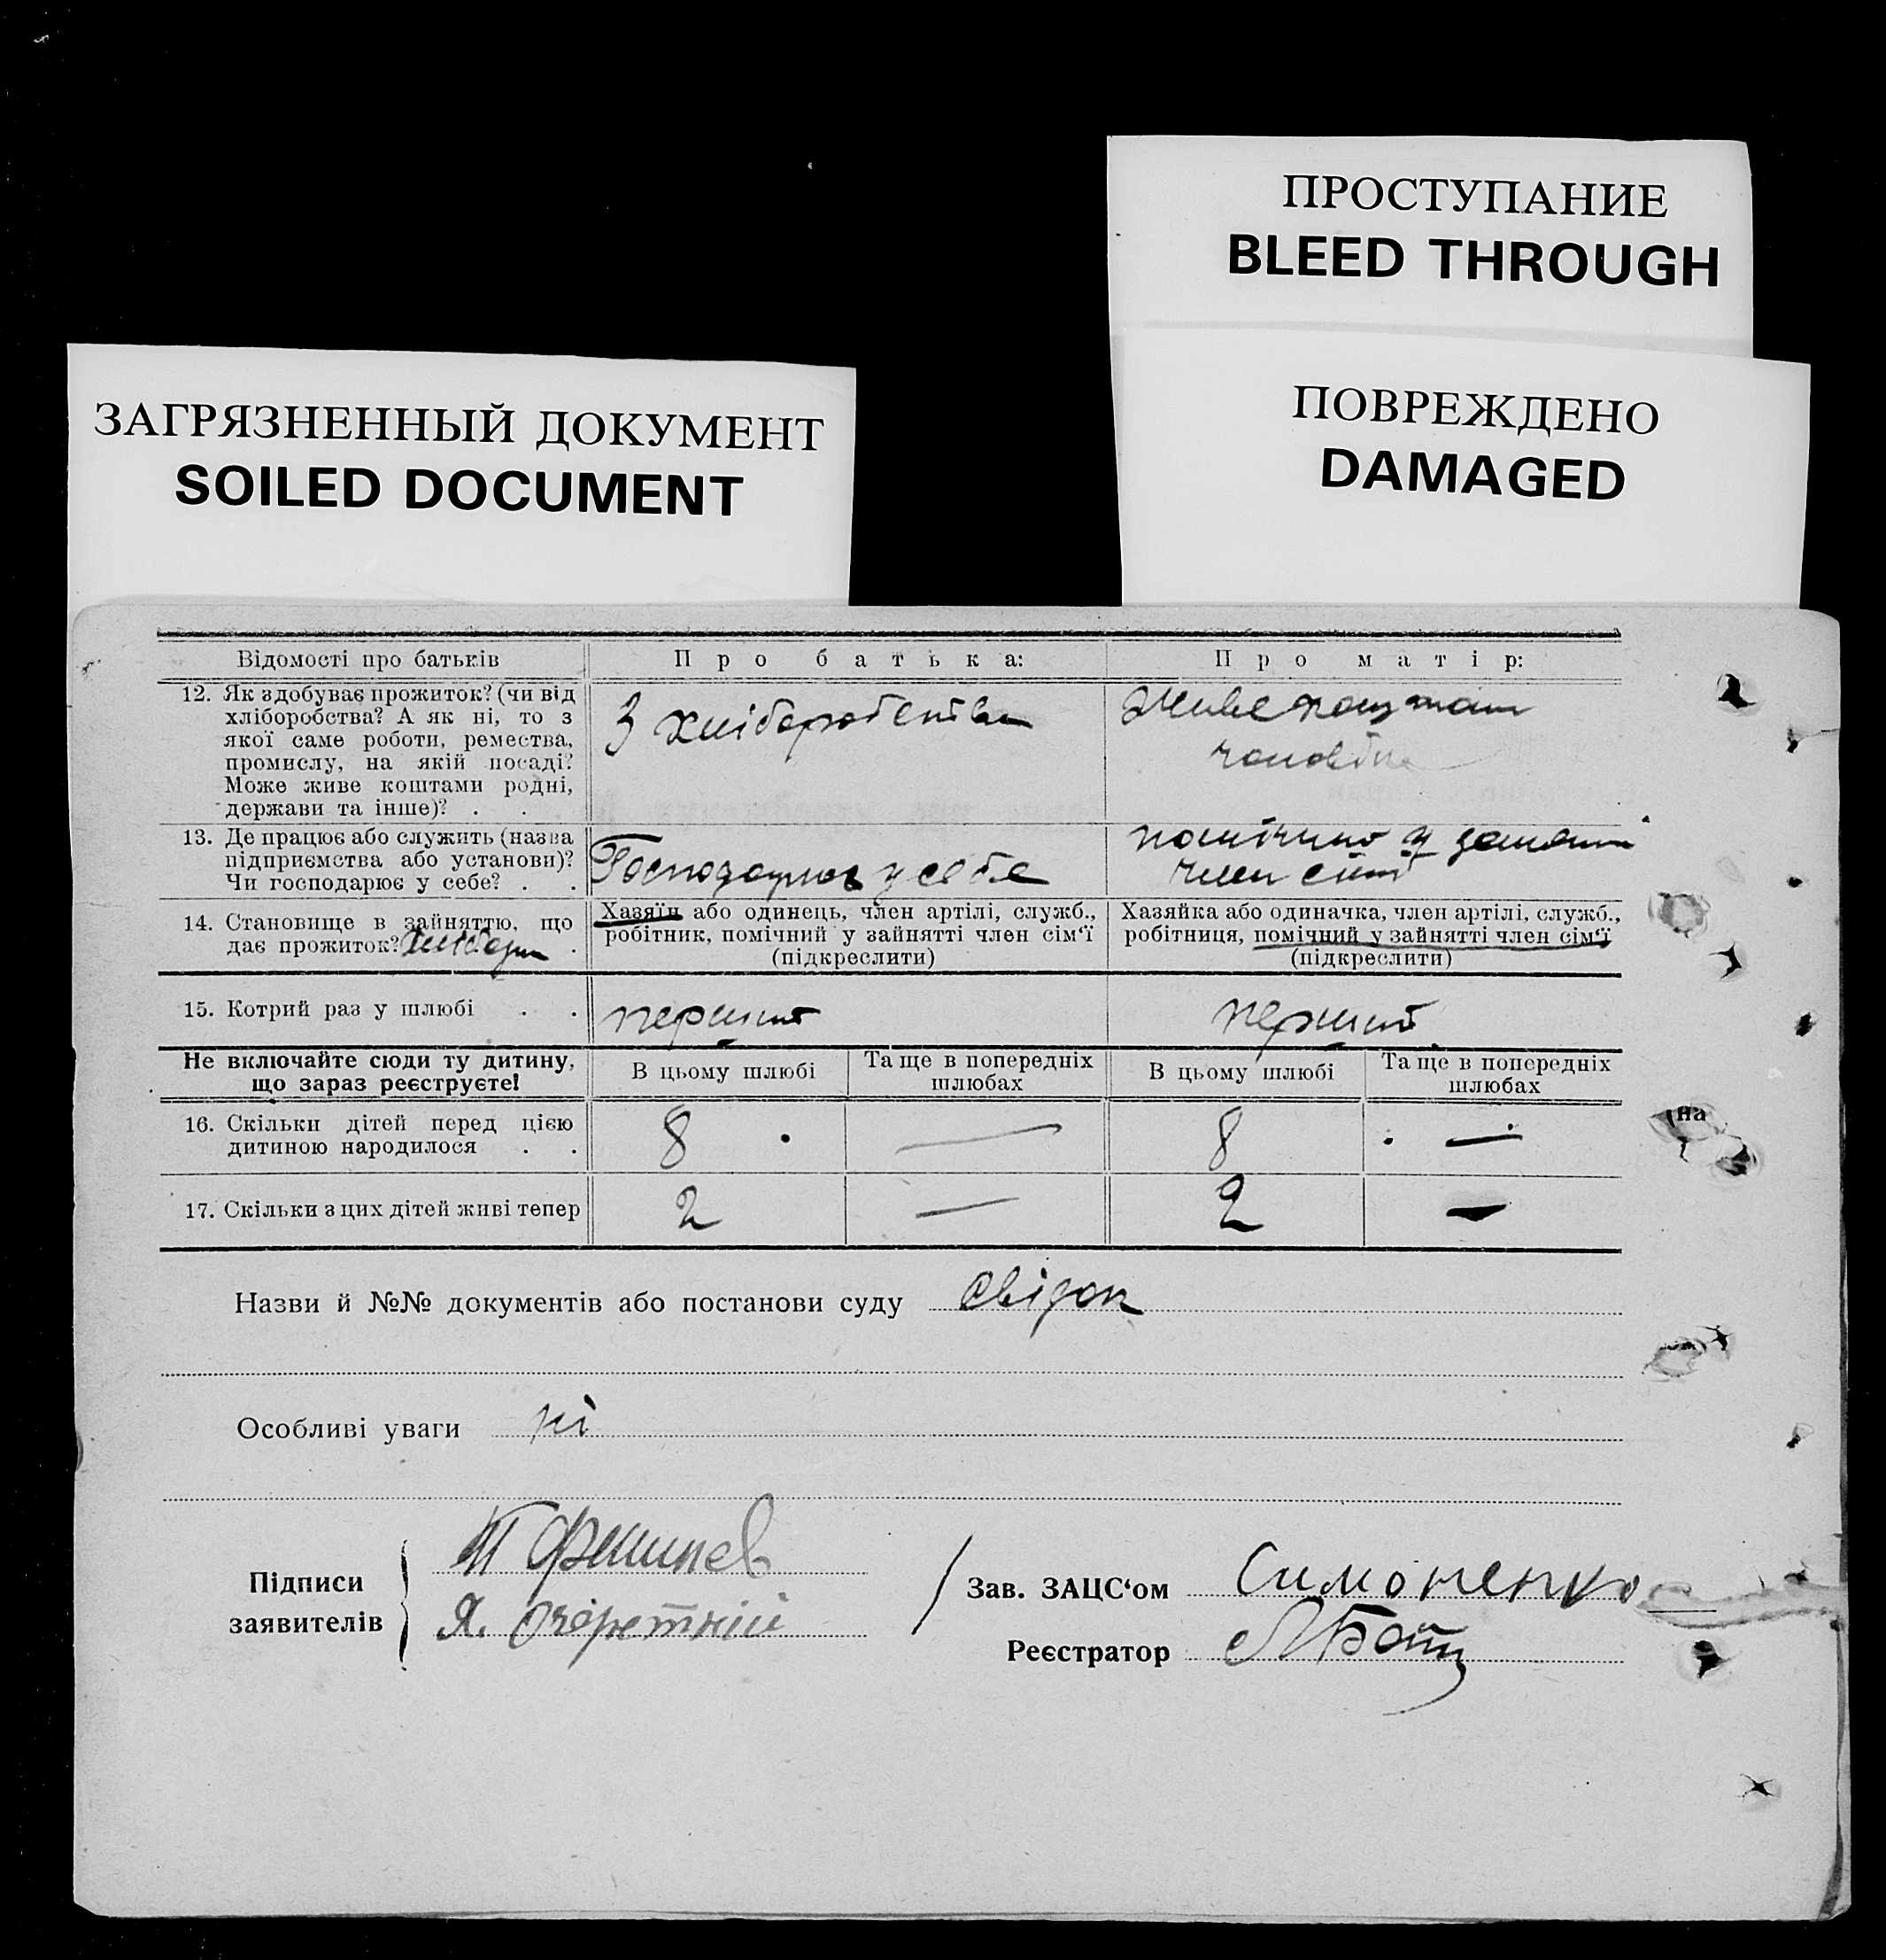 ПРОСТУПАНИЕ
BLEED THROUGH
ПОВРЕЖДЕНО
DAMAGED
ЗАГРЯЗНЕННЫЙ ДОКУМЕНТ
SOILED DOCUMENT
Відомості про батьків
Про батька:
Про матір:
12. Як здобуває прожиток? (чи від
хліборобства? А як ні, то з
якої саме роботи, ремества,
промислу, на якій посаді?
Може живе коштами родні,
держави та інше)? . .
З хліборобства
Живе коштами
чоловіка
13. Де працює або служить (назва
підприємства або установи)?
Чи господарює у себе? . .
Господарює у себе
помічник у
член сімї
14. Становище в зайняттю, що
дає прожиток? .
Хазяїн або одинець, член артілі, служб.,
робітник, помічний у зайнятті член сім‘ї
(підкреслити)
Хазяйка або одиначка, член артілі, служб.,
робітниця, помічний у зайнятті член сім‘ї
(підкреслити)
15. Котрий раз у шлюбі . .
перший
перший
Не включайте сюди ту дитину,
що зараз реєструєте!
В цьому шлюбі
Та ще в попередніх
шлюбах
В цьому шлюбі
Та ще в попередніх
шлюбах
16. Скільки дітей перед цією
дитиною народилося . .
8
—
8
—
на
17. Скільки з цих дітей живі тепер
2
—
2
—
Назви й №№ документів або постанови суду Свідок
Особливі уваги ні
Підписи
заявителів
Я. Очеретній
Зав. ЗАЦС‘ом Симоненко
Реєстратор